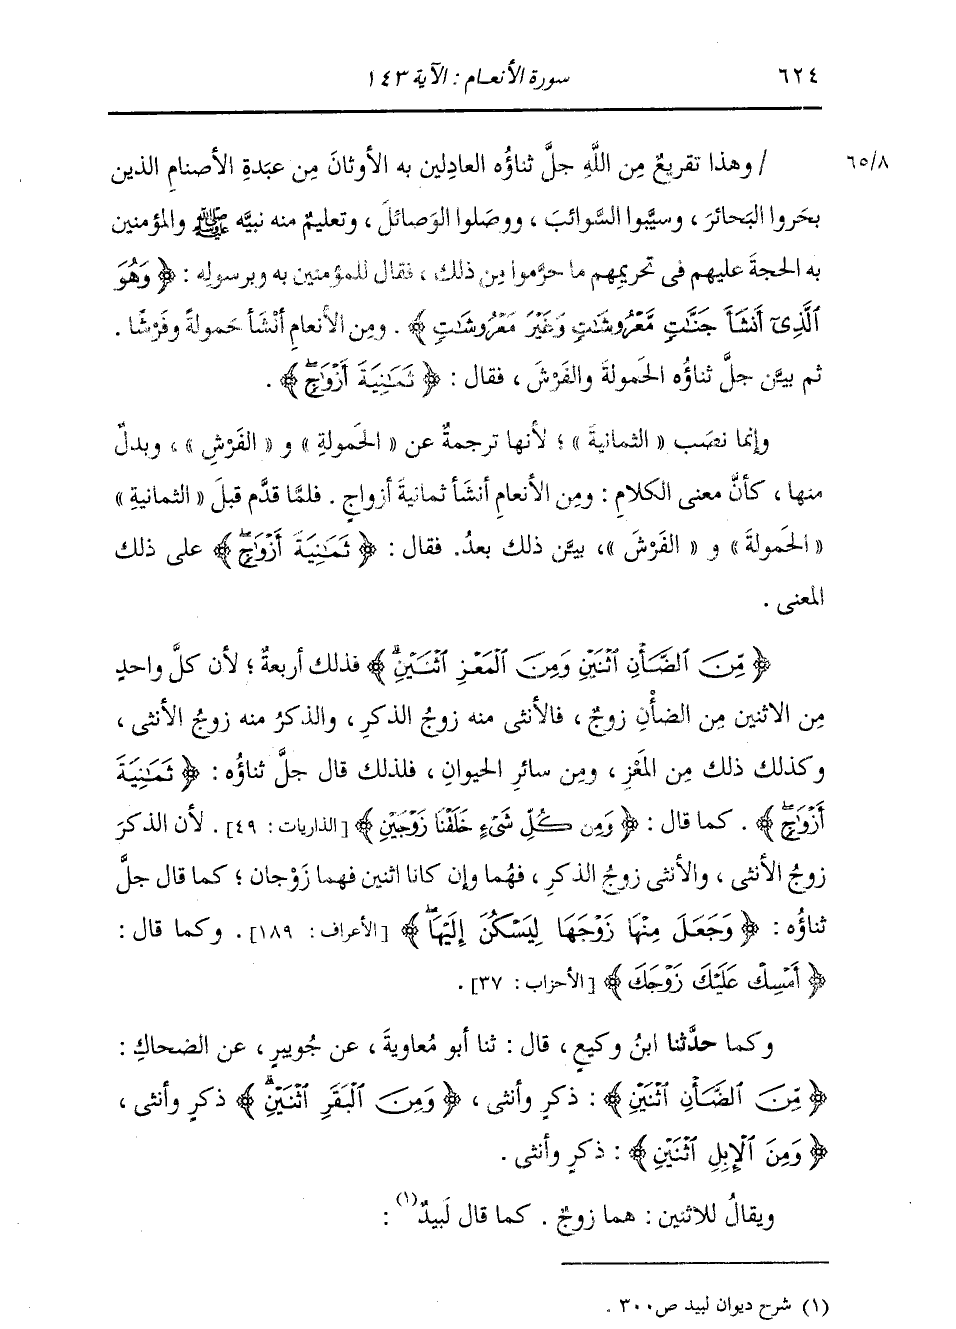 ٦٢٤ سورة الأنعام : الآية ١٤٣
٦٥/٨ / وهذا تقريعٌ مِن اللَّهِ جلَّ ثناؤُه العادِلين به الأوثانَ مِن عبَدةِ الأصنامِ الذين
بحَروا البَحائرَ ، وسيَّبوا السَّوائبَ ، ووصَلوا الوَصائلَ ، وتعليمٌ منه نبيَّه ﷺ والمؤمنين
به الحجةَ عليهم فى تحريمِهم ما حرَّموا مِن ذلك ، فقال للمؤمنين به وبرسولِه : ﴿ وَهُوَ
ٱلَّذِىٓ أَنشَأَ جَنَّٰتٍ مَّعْرُوشَٰتٍ وَغَيْرَ مَعْرُوشَٰتٍ ﴾ . ومِن الأنعامِ أنْشَأ حَمولةً وفَرْشًا .
ثم بيَّن جلَّ ثناؤُه الحَمولةَ والفَرْشَ ، فقال : ﴿ ثَمَٰنِيَةَ أَزْوَٰجٍ ۖ ﴾ .
وإنما نصَب « الثمانيةَ » ؛ لأنها ترجمةٌ عن « الحَمولةِ » و « الفَرْشِ » ، وبدلٌ
منها ، كأنَّ معنى الكلامِ : ومِن الأنعامِ أنشَأ ثمانيةَ أزواجٍ . فلمَّا قدَّم قبلَ « الثمانيةِ »
« الحَمولةَ » و « الفَرْشَ » ، بيَّن ذلك بعدُ. فقال : ﴿ ثَمَٰنِيَةَ أَزْوَٰجٍ ۖ ﴾ على ذلك
المعنى .
﴿ مِّنَ ٱلضَّأْنِ ٱثْنَيْنِ وَمِنَ ٱلْمَعْزِ ٱثْنَيْنِ ۗ ﴾ فذلك أربعةٌ ؛ لأن كلَّ واحدٍ
مِن الاثنين مِن الضأْنِ زوجٌ ، فالأنثى منه زوجُ الذكرِ ، والذكرُ منه زوجُ الأنثى ،
وكذلك ذلك مِن المَعْزِ ، ومِن سائرِ الحيوانِ ، فلذلك قال جلَّ ثناؤُه : ﴿ ثَمَٰنِيَةَ
أَزْوَٰجٍ ۖ ﴾ . كما قال : ﴿ وَمِن كُلِّ شَىْءٍ خَلَقْنَا زَوْجَيْنِ ﴾ [الذاريات : ٤٩] . لأن الذكرَ
زوجُ الأنثى ، والأنثى زوجُ الذكرِ ، فهُما وإن كانا اثنين فهما زَوْجان ؛ كما قال جلَّ
ثناؤُه : ﴿ وَجَعَلَ مِنْهَا زَوْجَهَا لِيَسْكُنَ إِلَيْهَا ۖ ﴾ [الأعراف : ١٨٩] . وكما قال :
﴿ أَمْسِكْ عَلَيْكَ زَوْجَكَ ﴾ [الأحزاب : ٣٧] .
وكما حدَّثنا ابنُ وكيعٍ ، قال : ثنا أبو مُعاويةَ ، عن جُويبرٍ ، عن الضحاكِ :
﴿ مِّنَ ٱلضَّأْنِ ٱثْنَيْنِ ﴾ : ذكرٍ وأنثى ، ﴿ وَمِنَ ٱلْبَقَرِ ٱثْنَيْنِ ۗ ﴾ ذكرٍ وأنثى ،
﴿ وَمِنَ ٱلْإِبِلِ ٱثْنَيْنِ ﴾ : ذكرٍ وأنثى .
ويقالُ للاثنين : هما زوجٌ . كما قال لَبيدٌ (١) :
(١) شرح ديوان لبيد ص٣٠٠ .